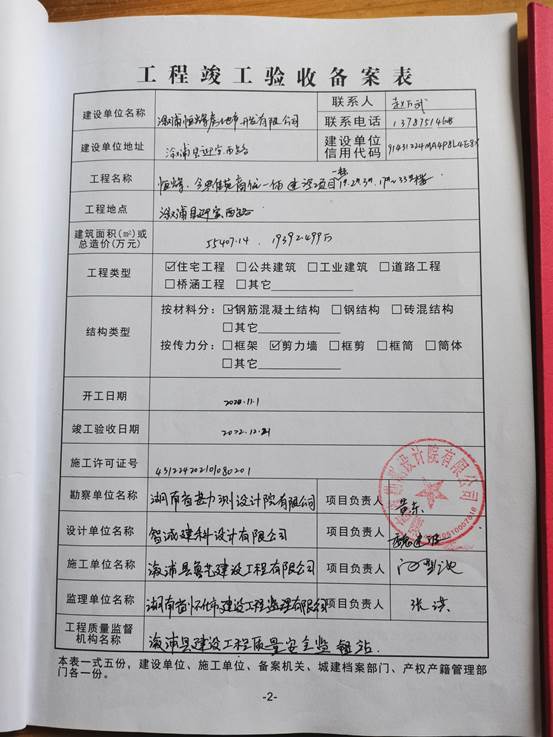 工程竣工验收备案表
建设单位名称 溆浦恒辉房地产开发有限公司 联系人
联系电话
建设单位地址 溆浦县迎宾西路 建设单位信用代码
工程名称 恒辉 建设项目一期
工程地点 溆浦县迎宾西路
建筑面积(㎡)或总造价(万元) 55407.14 19392.499万
工程类型 ☑住宅工程 □公共建筑 □工业建筑 □道路工程
□桥涵工程 □其它
结构类型 按材料分：☑钢筋混凝土结构 □钢结构 □砖混结构
□其它
按传力分：□框架 ☑剪力墙 □框剪 □框筒 □筒体
□其它
开工日期 2020.11.1
竣工验收日期 2022.12.21
施工许可证号 431224202101080201
勘察单位名称 湖南省勘测设计院有限公司 项目负责人
设计单位名称 智诚建科设计有限公司 项目负责人
施工单位名称 溆浦县 建设工程有限公司 项目负责人
监理单位名称 湖南省怀化市建设工程监理有限公司 项目负责人 张洪
工程质量监督机构名称 溆浦县建设工程质量安全监督站
设计院有限公司
本表一式五份，建设单位、施工单位、备案机关、城建档案部门、产权产籍管理部
门各一份。
-2-